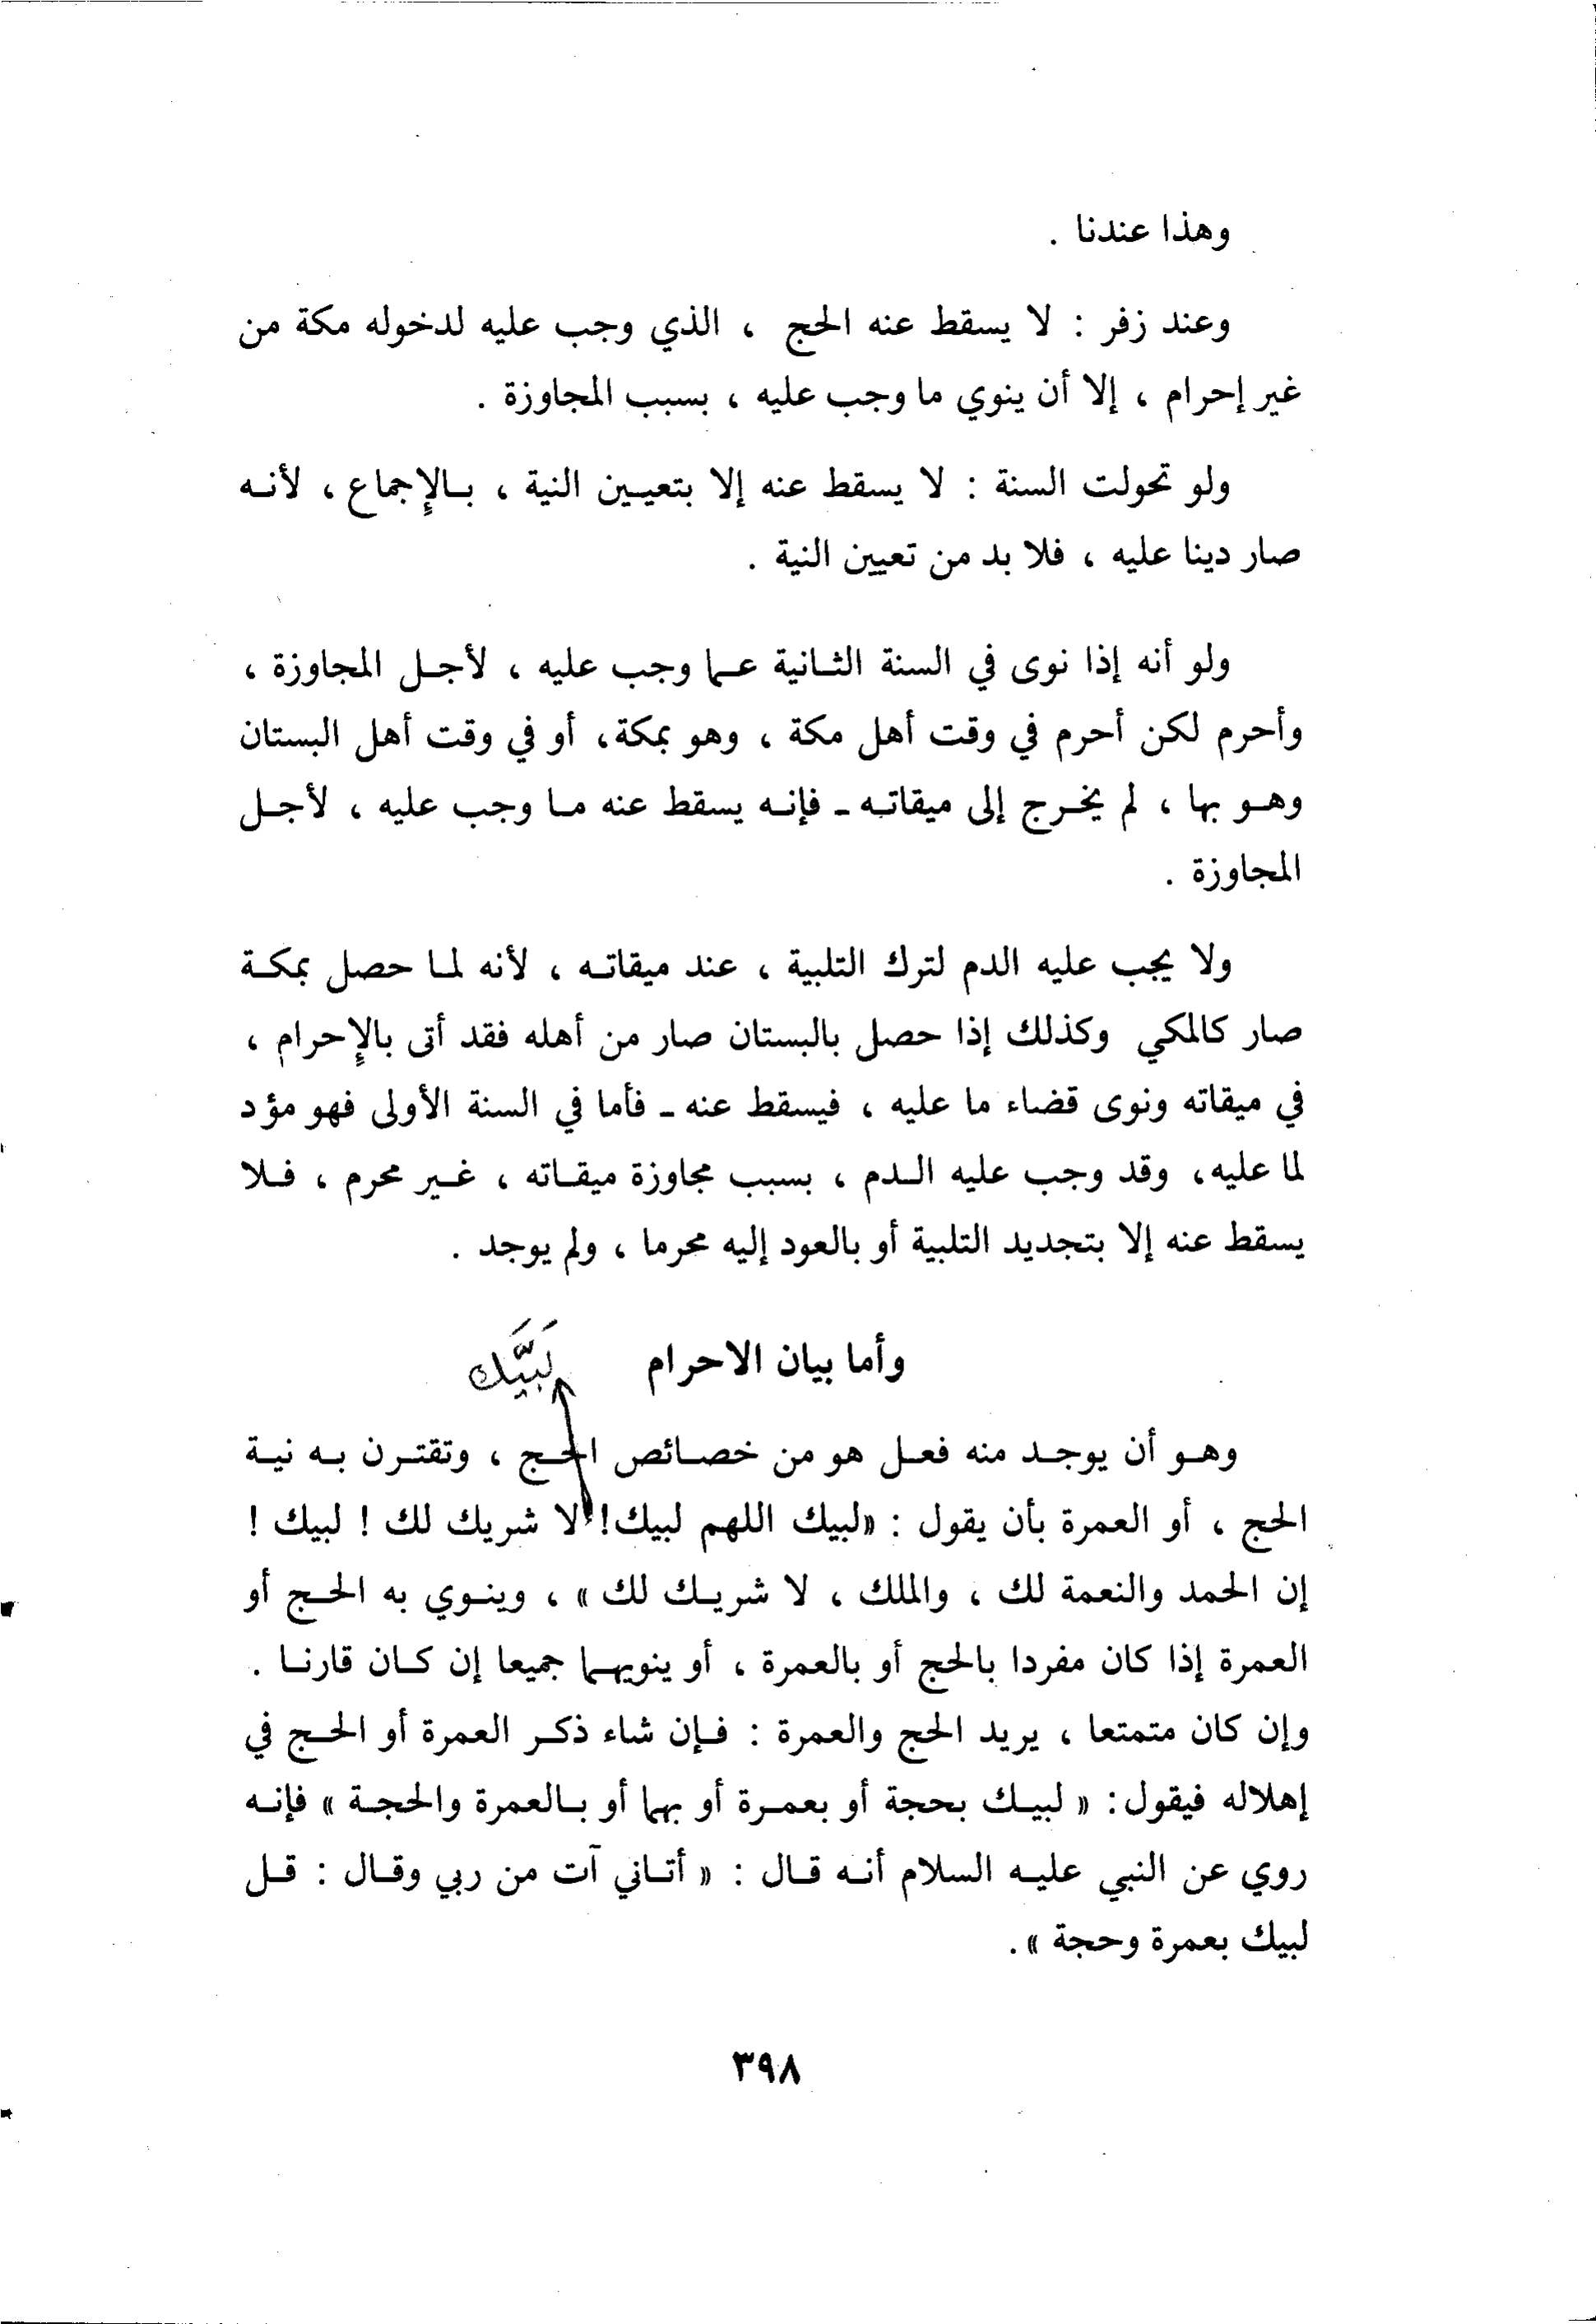 وهذا عندنا .
وعند زفر : لا يسقط عنه الحج ، الذي وجب عليه لدخوله مكة من
غير إحرام ، إلا أن ينوي ما وجب عليه ، بسبب المجاوزة .
ولو تحولت السنة : لا يسقط عنه إلا بتعيين النية ، بالإجماع ، لأنه
صار دينا عليه ، فلا بد من تعيين النية .
ولو أنه إذا نوى في السنة الثانية عما وجب عليه ، لأجل المجاوزة ،
وأحرم لكن أحرم في وقت أهل مكة ، وهو بمكة، أو في وقت أهل البستان
وهو بها ، لم يخرج إلى ميقاته ـ فإنه يسقط عنه ما وجب عليه ، لأجل
المجاوزة .
ولا يجب عليه الدم لترك التلبية ، عند ميقاته ، لأنه لما حصل بمكة
صار كالمكي وكذلك إذا حصل بالبستان صار من أهله فقد أتى بالإحرام ،
في ميقاته ونوى قضاء ما عليه ، فيسقط عنه ـ فأما في السنة الأولى فهو مؤد
لما عليه، وقد وجب عليه الدم ، بسبب مجاوزة ميقاته ، غير محرم ، فلا
يسقط عنه إلا بتجديد التلبية أو بالعود إليه محرما ، ولم يوجد .
وأما بيان الاحرام لَبَّيْك
وهو أن يوجد منه فعل هو من خصائص الحج ، وتقترن به نية
الحج ، أو العمرة بأن يقول : «لبيك اللهم لبيك! لا شريك لك ! لبيك !
إن الحمد والنعمة لك ، والملك ، لا شريك لك » ، وينوي به الحج أو
العمرة إذا كان مفردا بالحج أو بالعمرة ، أو ينويهما جميعا إن كان قارنا .
وإن كان متمتعا ، يريد الحج والعمرة : فإن شاء ذكر العمرة أو الحج في
إهلاله فيقول: « لبيك بحجة أو بعمرة أو بهما أو بالعمرة والحجة » فإنه
روي عن النبي عليه السلام أنه قال : « أتاني آت من ربي وقال : قل
لبيك بعمرة وحجة ».
٣٩٨